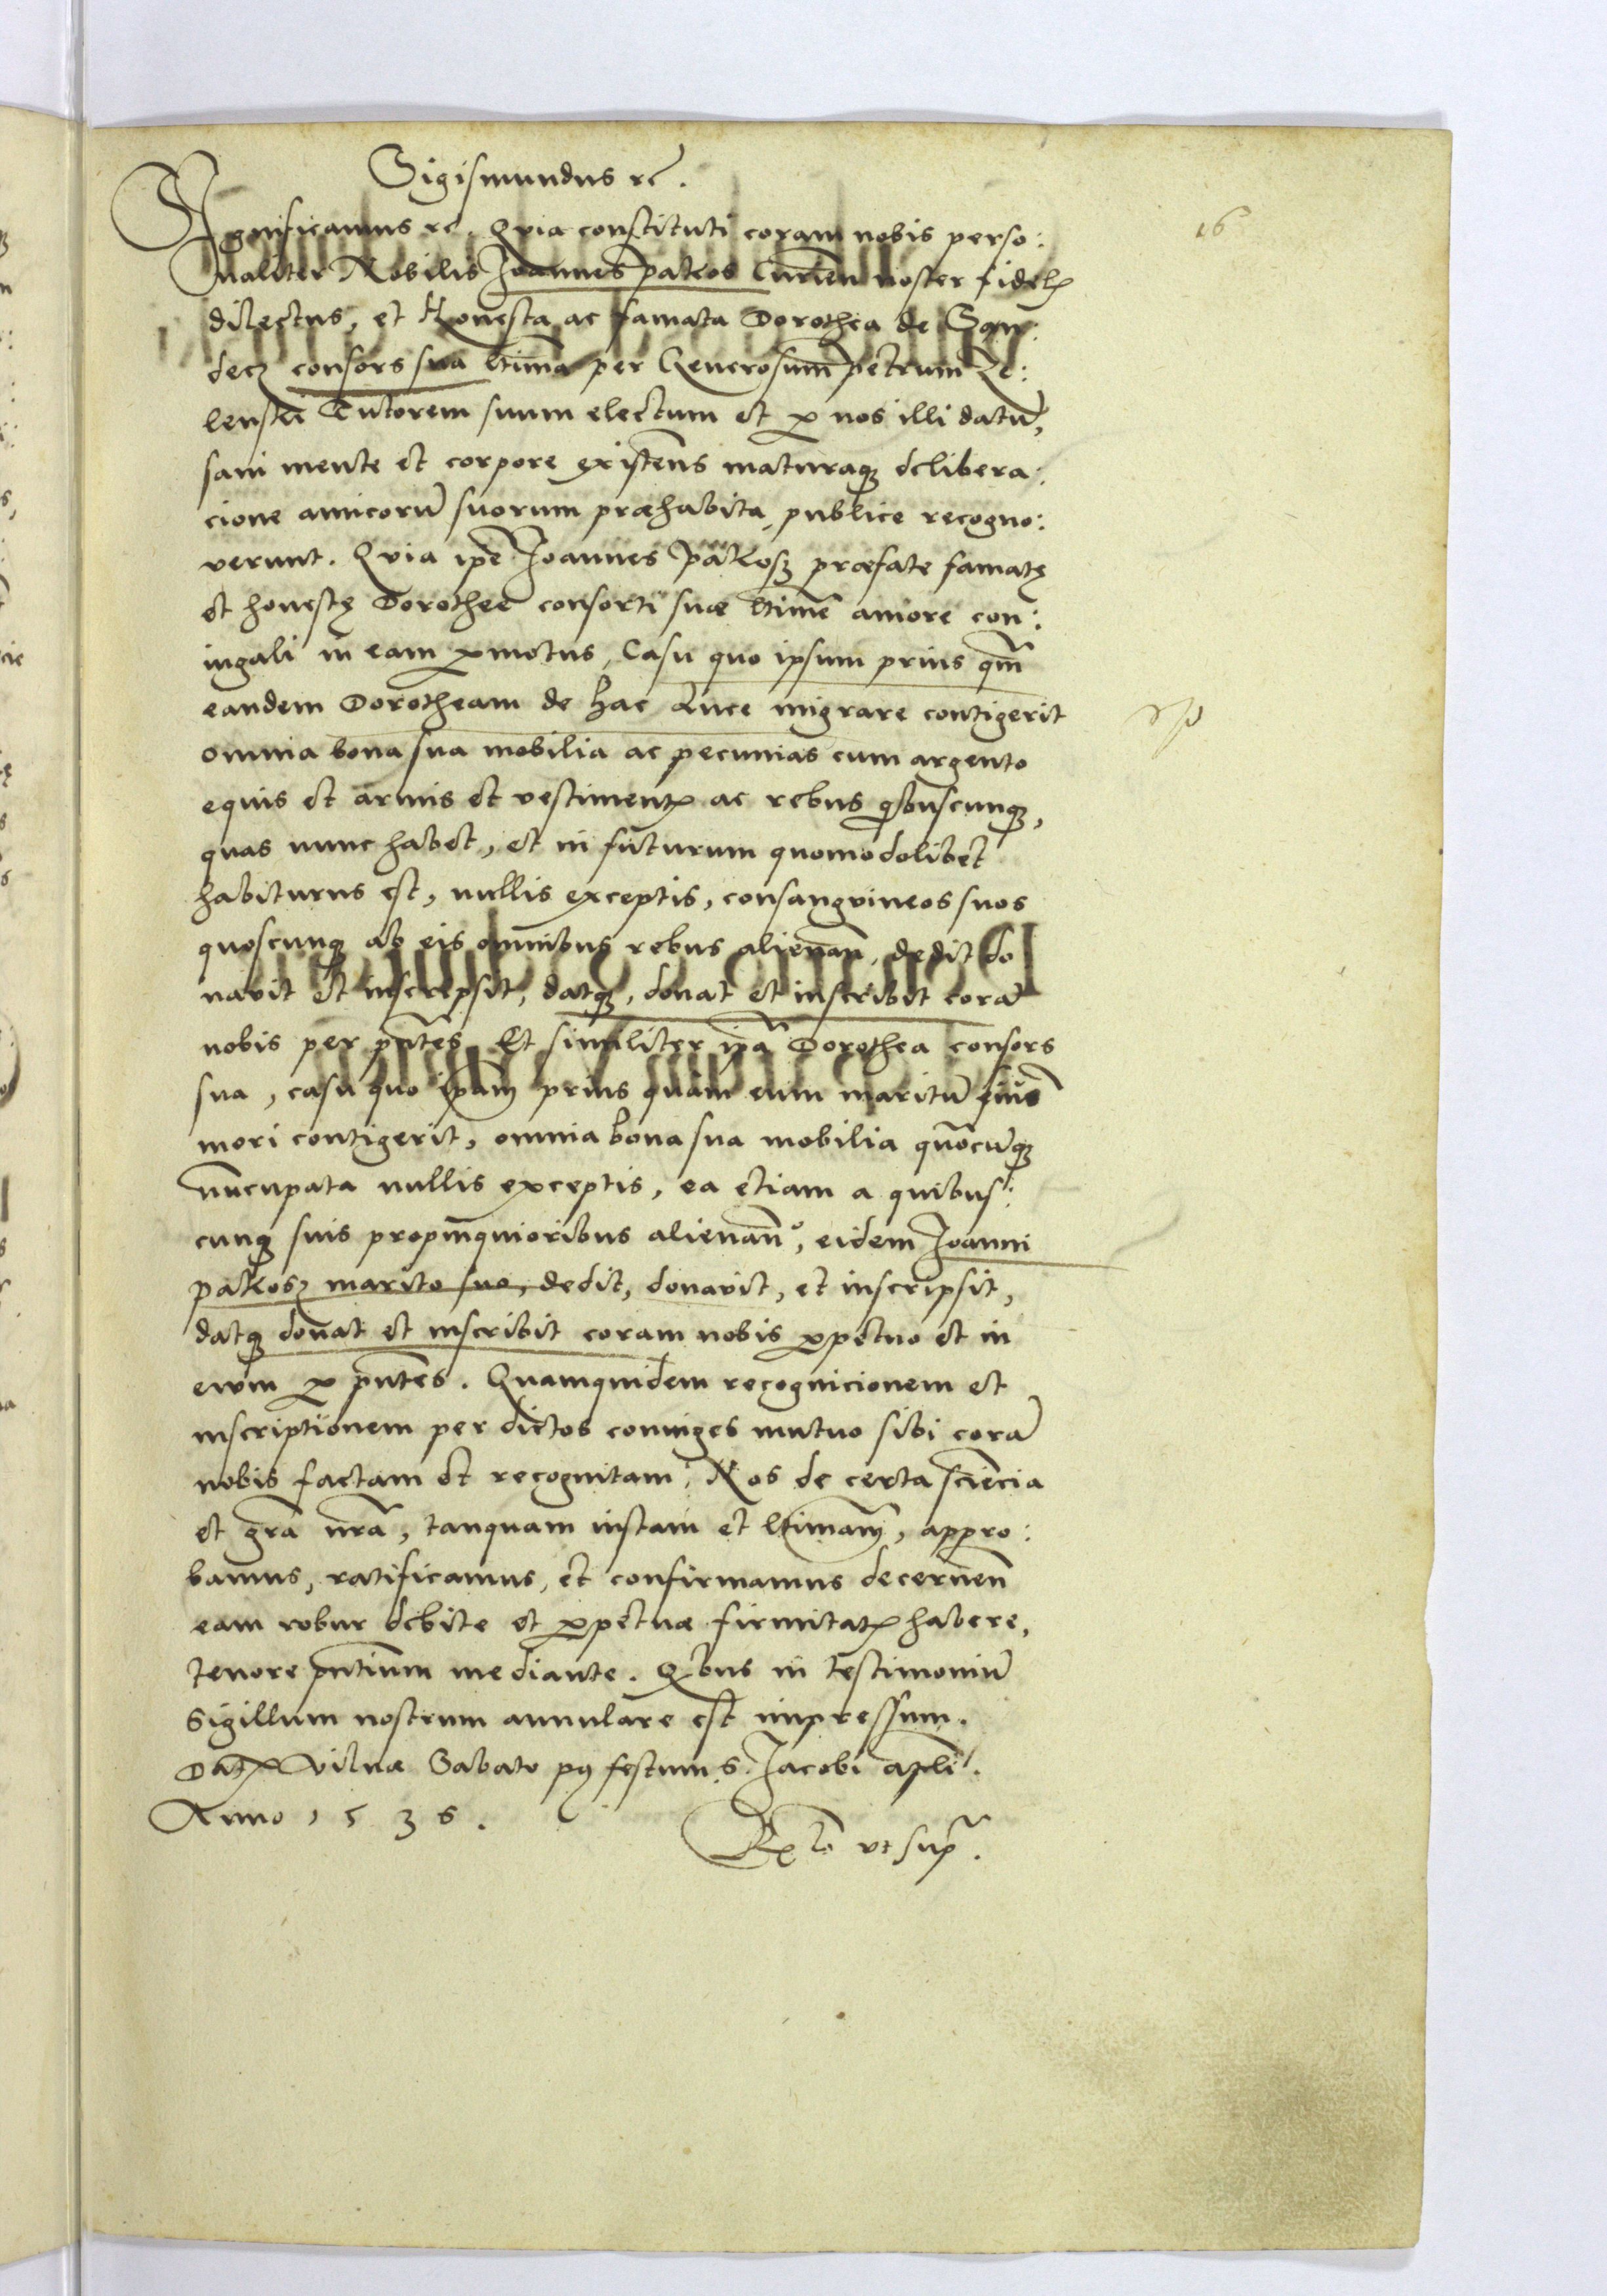 Sigismundus rc̃.
16
Significamus rc. Quia constituti coram nobis perso:
naliter Nobilis Joannes patkos Curien̄ noster fidel̄
dilectus, et Honesta ac famata Dorothea de San:
decz consors sua ltima per Generosum petrum Ze:
lenski Tutorem suum electum et p nos illi datū,
sani mente et corpore existen̄s maturaq3 delibera:
cione amicorū suorum præhabita, publice recogno:
verunt. Quia ipē Joannes Patkosz præfate famatę
et honestę Dorothee consorti suæ ltimē amore con:
iugali in eam pmotus, Casu quo ipsum prius qm̄
eandem Dorotheam de hac Luce migrare contigerit
omnia bona sua mobilia ac pecunias cum argento
equis et armis et vestimentꝭ ac rebus qibuscunq3,
quas nunc habet, et in futurum quomodolibet
habiturus est, nullis exceptis, consanguineos suos
quoscunq3 ab eis omnibus rebus alienan̄, dedit do
navit et inscripsit, datq3, donat et inscribit corā
nobis per pn̄tes Et similiter ipā Dorothea consors
sua, casu quo ipam̄ prius quam eum maritū eius
mori contigerit, omnia bona sua mobilia quōcūq3
nūcupata nullis exceptis, ea etiam a quibus:
cunq3 suis propinquioribus alienan̄, eidem Joanni
patkosz marito suo, dedit, donavit, et inscripsit,
datq3 donat et inscribit coram nobis ppetuo et in
ewm p pn̄tes. Quamquidem recognicionem et
inscriptionem per dictos coniuges mutuo sibi corā
nobis factam et recognitam, Nos de certa sciēcia
et grā nrā, tanquam iustam et ltimam̄, appro:
bamus, ratificamus, et confirmamus decernen̄
eam robur debite et ppetuæ firmitatꝭ habere,
tenore pn̄tium mediante. Qibus in testimoniū
Sigillum nostrum annulare est impressum.
Datꝭ Vilnæ Sabato pꝰ festum S. Jacobi apli.
Anno 1536.
Rlo ut sup̄.